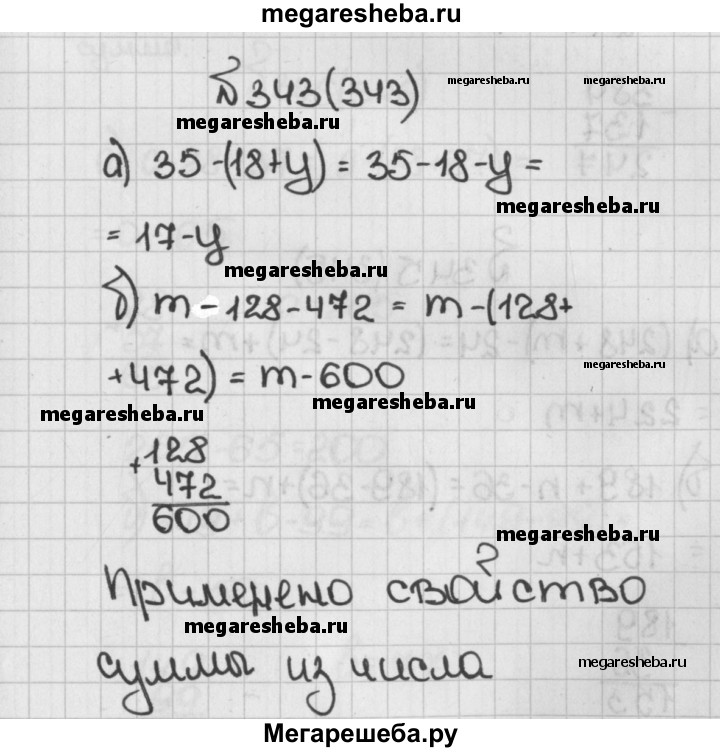 megaresheba.ru
№343(343)
megaresheba.ru
megaresheba.ru
а) 35-(18+y) = 35-18-y =
megaresheba.ru
= 17-y
megaresheba.ru
б) m-128-472 = m-(128+
megaresheba.ru
+472) = m-600
megaresheba.ru
megaresheba.ru
+128
472
600
megaresheba.ru
Применено свойство
megaresheba.ru
суммы из числа
megaresheba.ru
Мегарешеба.ру